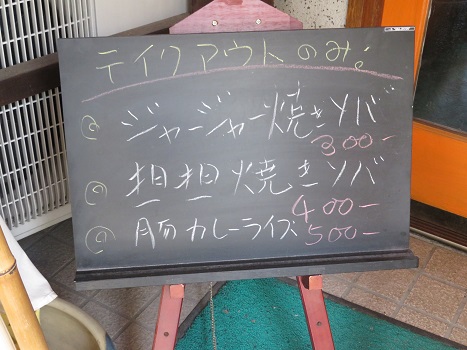 テイクアウトのみ。
◎ ジャージャー焼きソバ
300-
◎ 担担焼きソバ
400-
◎ 豚カレーライス
500-